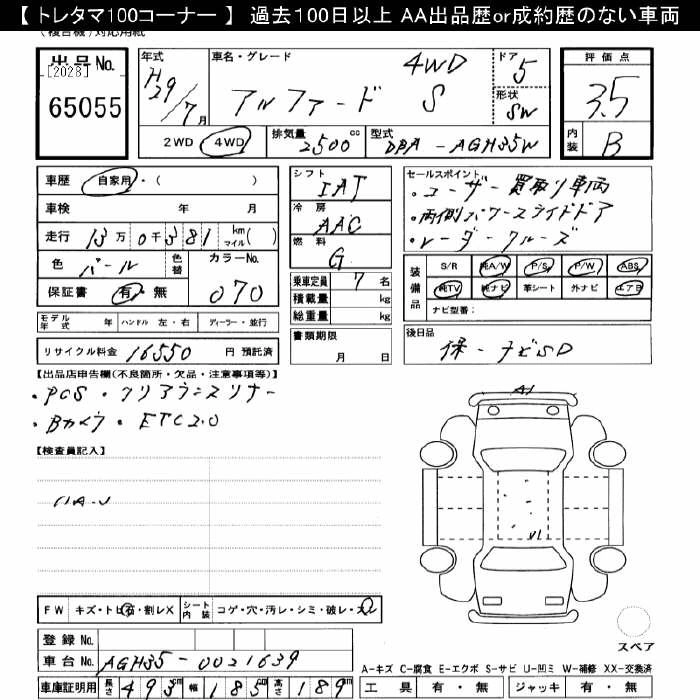 【 トレタマ100コーナー 】 過去100日以上 AA出品歴or成約歴のない車両
(複合機)対応用紙
出品No.
[2028]
65055
年式
H29/7月
車名・グレード
4WD
アルファード S
ドア
5
形状
SW
評価点
3.5
内装
B
2WD 4WD
排気量
2500cc
型式
DBA-AGH35W
車歴 自家用・( )
車検 年 月
走行 13万0千381 km マイル( )
色 パール 色替 カラーNo.
070
保証書 有・無
シフト
IAT
冷房
AAC
燃料
G
乗車定員 7 名
積載量 kg
総重量 kg
書類期限
月 日
セールスポイント
・ユーザー買取り車両
・両側パワースライドドア
・レーダークルーズ
装備品
S/R 純A/W P/S P/W ABS
純TV 純ナビ 革シート 外ナビ エアB
ナビ型番:
後日品
保-ナビSD
モデル年式 年 ハンドル 左・右 ディーラー・並行
リサイクル料金 16550 円 預託済
【出品店申告欄(不良箇所・欠品・注意事項等)】
・PCS・クリアランスソナー
・Bカメラ・ETC2.0
【検査員記入】
A1
FW キズ・トビ石・割レX シート内装 コゲ・穴・汚レ・シミ・破レ・スレ
登録No.
車台No. AGH35-0021639
車庫証明用 長さ 493cm 幅 185cm 高さ 189cm
スペア
A-キズ C-腐食 E-エクボ S-サビ U-凹ミ W-補修 XX-交換済
工具 有・無 ジャッキ 有・無